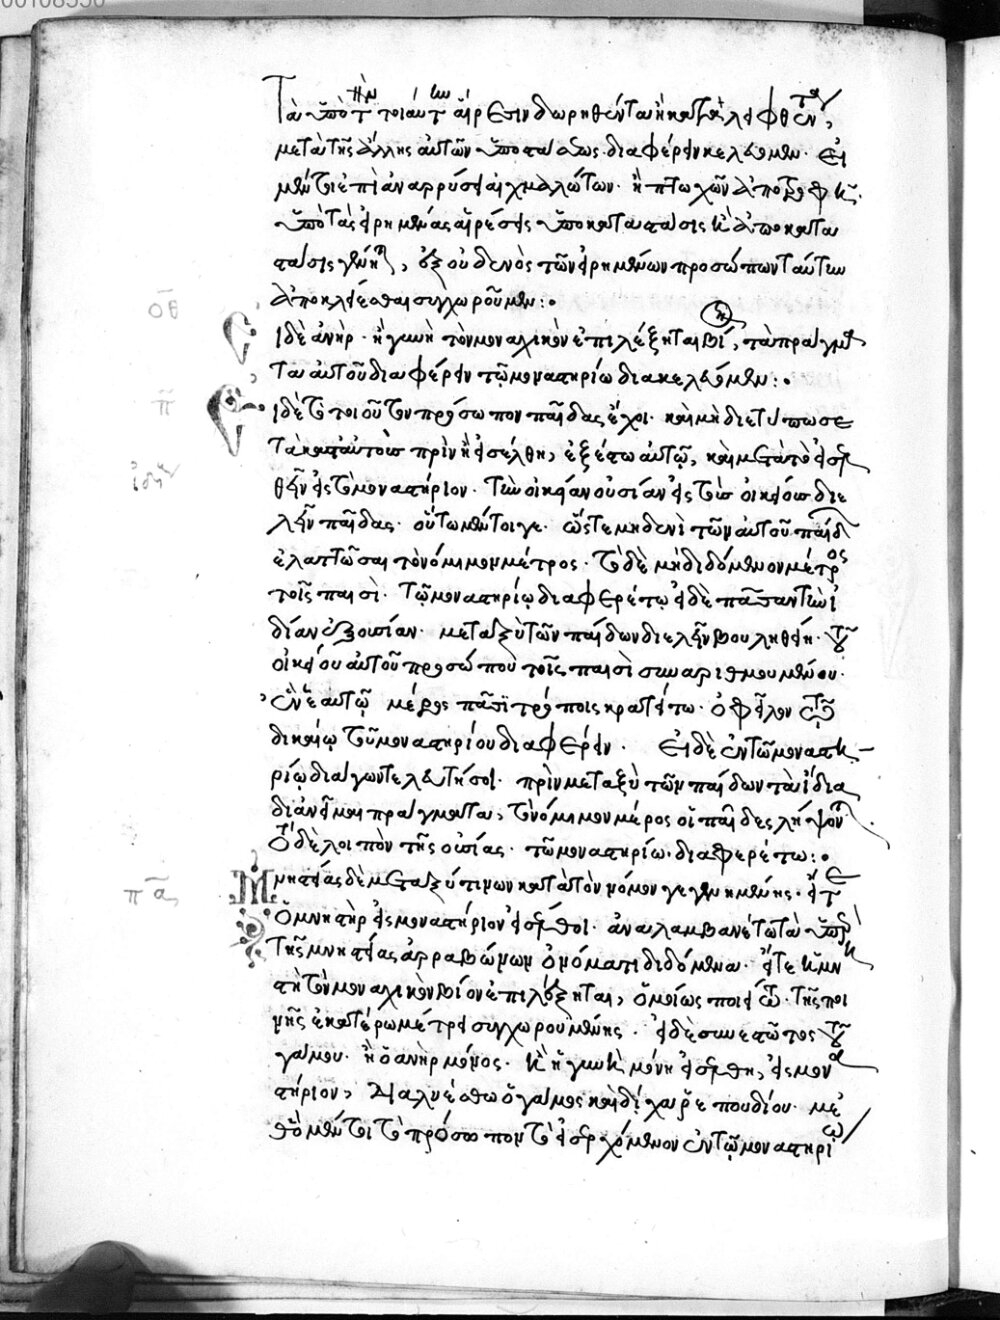 τὰ ὑπὸ τὴν τοιαύτην αἵρεσιν δωρηθέντα ἢ καταλειφθέντα,
μετὰ τῆς ἄλλης αὐτῶν ὑποστάσεως διαφέρειν κελεύομεν. εἰ
μέντοι ἐπὶ ἀναρρύσει αἰχμαλώτων. ἢ πτωχῶν ἀποτροφῆς.
ὑπὸ τὰς εἰρημένας αἱρέσεις ὑποκατάστασις ἢ ἀποκατά
στασις γένηται, ἐξ οὐδενὸς τῶν εἰρημένων προσώπων ταύτην
ἀποκλείεσθαι συγχωροῦμεν:
οθ
Εἰ δὲ ἀνὴρ. ἢ γυνὴ τὸν μοναχικὸν ἐπιλέξηται βίον, τὰ πράγματα
τὰ αὐτοῦ διαφέρειν τῷ μοναστηρίῳ διακελεύομεν:
π
Εἰ δὲ τὸ τοιοῦτον πρόσωπον παῖδας ἔχοι. καὶ μὴ διετύπωσε
τὰ κατ' αὐτοὺς πρὶν ἢ εἰσέλθῃ, ἐξέστω αὐτῷ, καὶ μετὰ τὸ εἰσελ
θεῖν εἰς τὸ μοναστήριον. τὴν οἰκείαν οὐσίαν εἰς τοὺς οἰκείους διε
λεῖν παῖδας. οὕτω μέντοι γε. ὥστε μηδενὶ τῶν αὐτοῦ παίδων
ἐλαττῶσαι τὸ νόμιμον μέρος. τὸ δὲ μὴ διδόμενον μέρος
τοῖς παισὶ. τῷ μοναστηρίῳ διαφερέτω. εἰ δὲ πᾶσαν τὴν ἰ
δίαν ἐξουσίαν. μεταξὺ τῶν παίδων διελεῖν βουληθείη. τοῦ
οἰκείου αὐτοῦ προσώπου τοῖς παισὶ συναριθμουμένου.
ἓν ἑαυτῷ μέρος πᾶσι τρόποις κρατείτω. ὀφεῖλον τῷ
δικαίῳ τοῦ μοναστηρίου διαφέρειν. Εἰ δὲ ἐν τῷ μοναστη
ρίῳ διάγων τελευτήσοι. πρὶν μεταξὺ τῶν παίδων τὰ ἴδια
διανεῖμαι πράγματα, τὸ νόμιμον μέρος οἱ παῖδες λήψονται
τὸ δὲ λοιπὸν τῆς οὐσίας. τῷ μοναστηρίῳ διαφερέτω:
πα
Μνηστείας δὲ μεταξύ τινων κατὰ τὸν νόμον γεγενημένης. εἴτε
ὁ μνηστὴρ εἰς μοναστήριον εἰσέλθοι. ἀναλαμβανέτω τὰ ὑπὲρ
τῆς μνηστείας ἀρραβώνων ὀνόματι διδόμενα. εἴτε ἡ μνη
στὴ τὸν μοναχικὸν βίον ἐπιλέξηται, ὁμοίως ποιείτω. τῆς ποι
νῆς ἑκατέρῳ μέρει συγχωρουμένης. εἰ δὲ συνεστῶτος τοῦ
γάμου. ἢ ὁ ἀνὴρ μόνος. ἢ ἡ γυνὴ μόνη εἰσέλθῃ, εἰς μονα
στήριον, διαλυέσθω ὁ γάμος καὶ δίχα ῥεπουδίου. μεθ'
ὃ μέντοι τὸ πρόσωπον τὸ εἰσερχόμενον ἐν τῷ μοναστηρίῳ